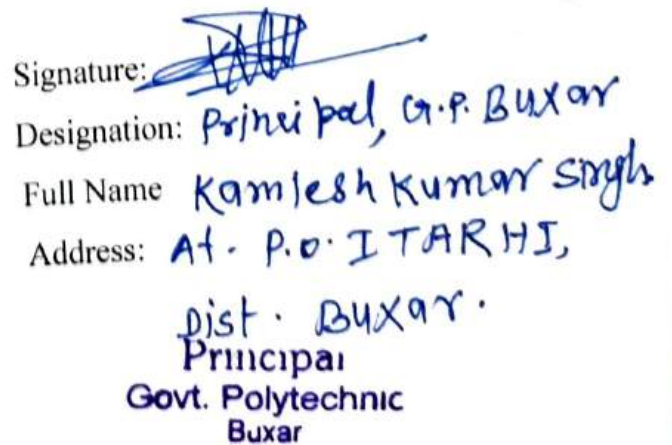 Signature:
Designation: Principal, G.P. Buxar
Full Name Kamlesh Kumar Singh
Address: At. P.O. ITARHI,
Dist. Buxar.
Principal
Govt. Polytechnic
Buxar